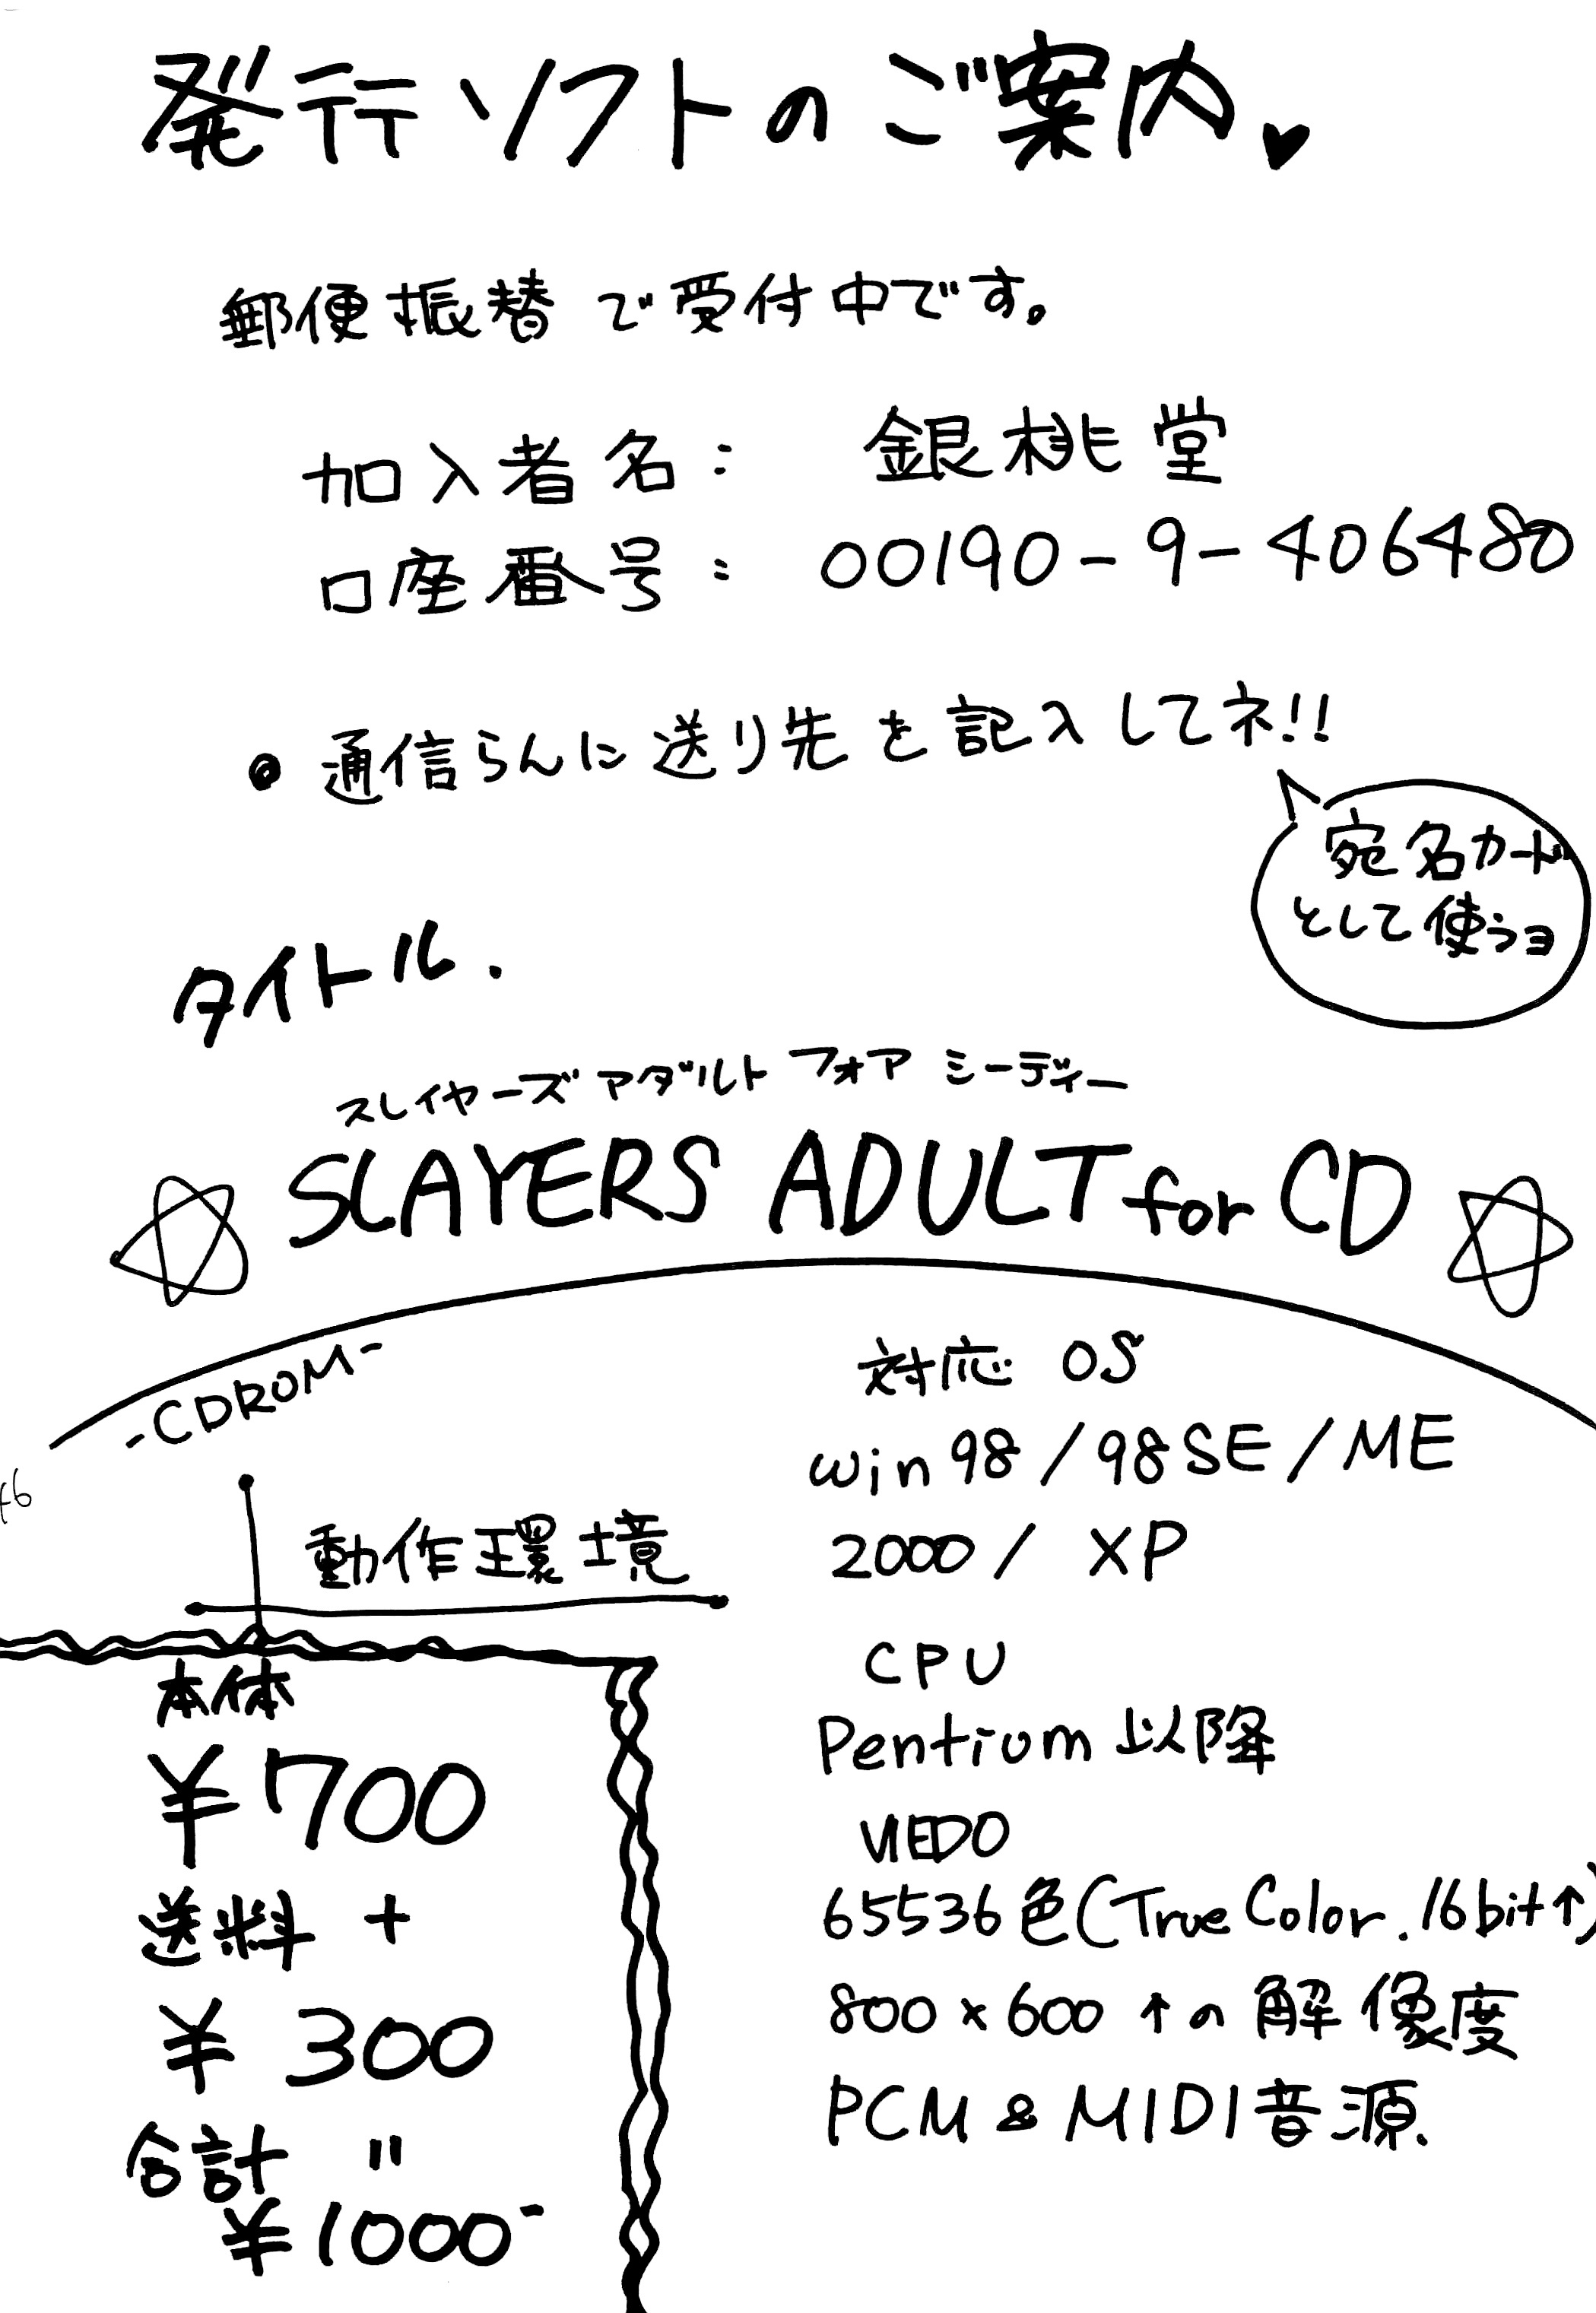 発行ソフトのご案内♥
郵便振替で受付中です。
加入者名: 銀桃堂
口座番号: 00190-9-406480
◎ 通信らんに送り先を記入してネ!!
宛名カード
として使うヨ
タイトル.
スレイヤーズ アダルト フォア シーディー
☆ SLAYERS ADULT for CD ☆
-CDROM-
動作環境
対応 OS
win 98 / 98SE / ME
2000 / XP
CPU
Pentium 以降
VIEDO
65536色(True Color. 16bit↑)
800×600 ↑の解像度
PCM & MIDI音源
本体
¥700
送料 +
¥300
合計 〃
¥1000-